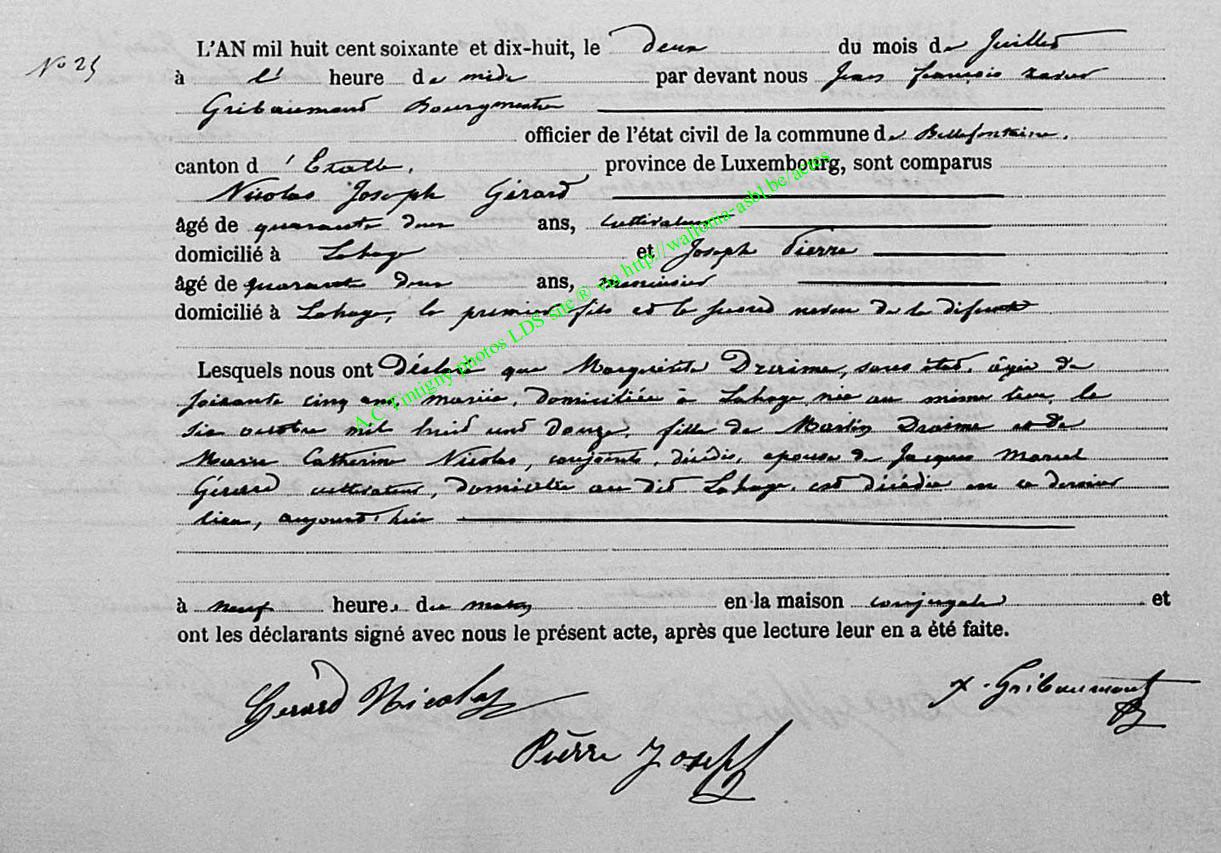 No 25
L'AN mil huit cent soixante et dix-huit, le deux du mois de Juillet
à l' heure de midi par devant nous Jean François Xavier
Gribaumont Bourgmestre
officier de l'état civil de la commune de Bellefontaine,
canton d'Etalle, province de Luxembourg, sont comparus
Nicolas Joseph Gérard
âgé de quarante deux ans, cultivateur
domicilié à Lahage et Joseph Pierre
âgé de quarante deux ans, menuisier
domicilié à Lahage, le premier fils et le second neveu de la défunte
Lesquels nous ont Déclaré que Marguerite, sans état, âgée de
soixante cinq ans, mariée, domiciliée à Lahage, née au même lieu, le
six octobre mil huit cent douze, fille de Martin et de
Marie Catherine Nicolas, conjoints, décédés, épouse de Jacques Marcel
Gérard cultivateur, domicilié au dit Lahage, est décédée en ce dernier
lieu, aujourd'hui
à neuf heures du matin en la maison conjugale et
ont les déclarants signé avec nous le présent acte, après que lecture leur en a été faite.
Gerard Nicolas
X. Gribaumont
Pierre Joseph
A.C. Tintigny photos LDS sne® via http://wallonia-asbl.be/actes